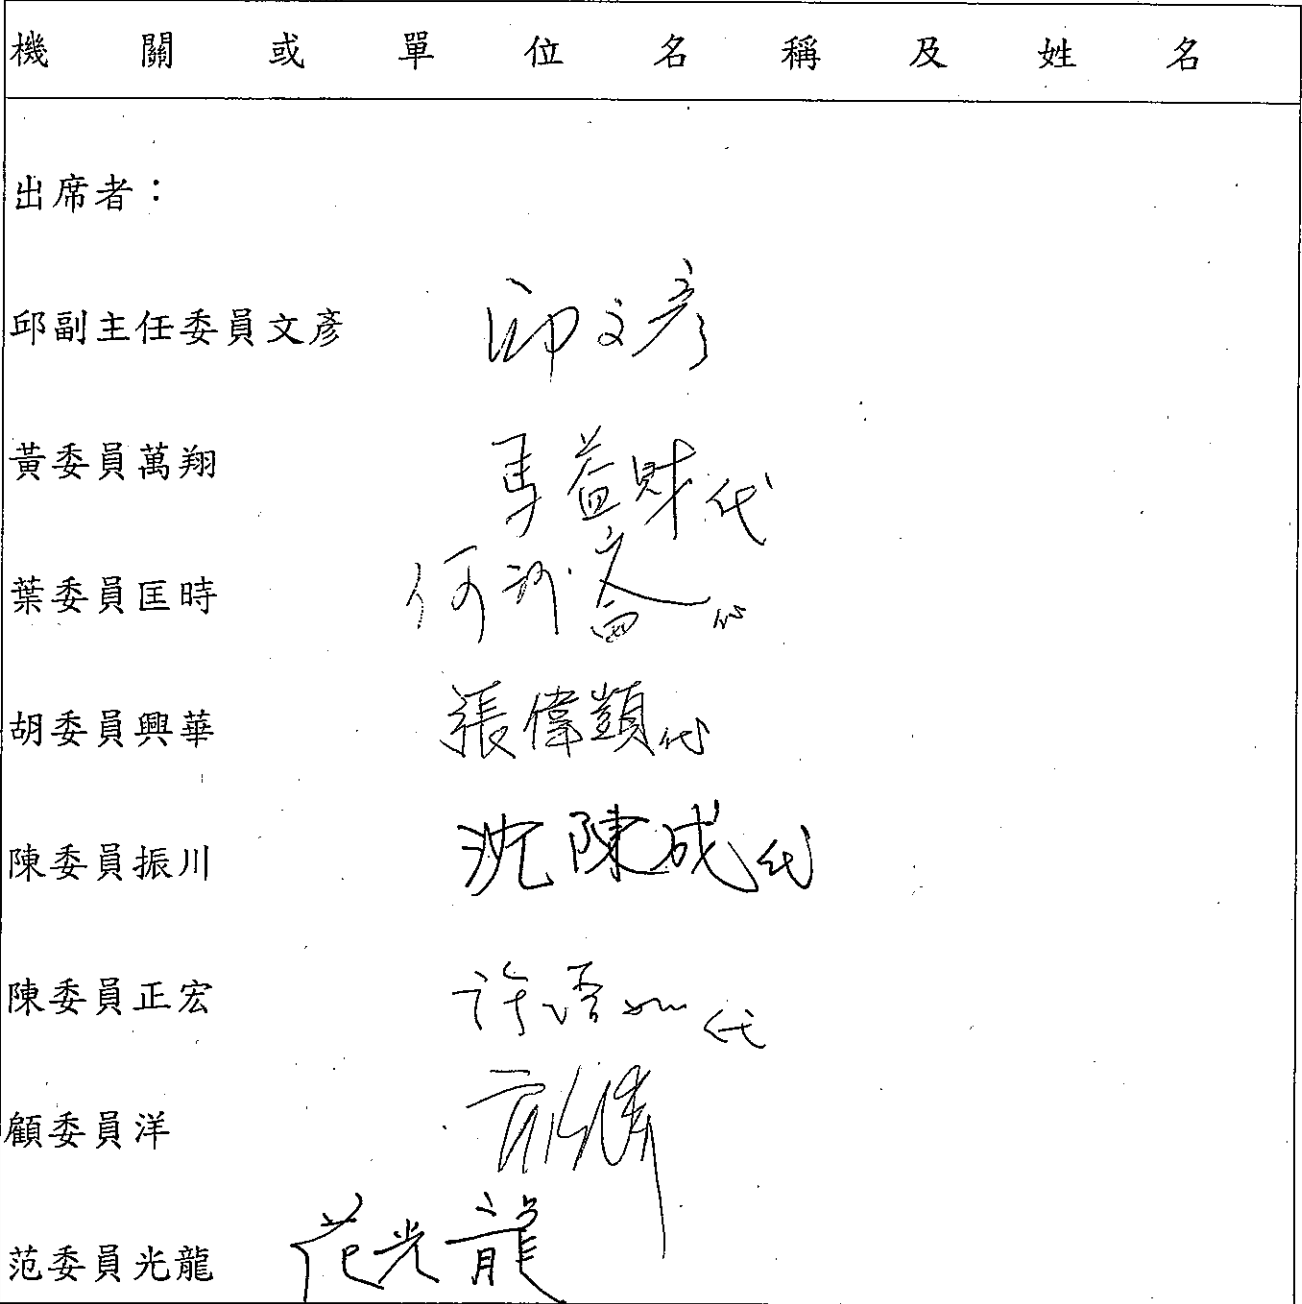 機關或單位名稱及姓名
出席者：
邱副主任委員文彥 邱文彥
黃委員萬翔 馬益財代
葉委員匡時 何 代
胡委員興華 張偉顗代
陳委員振川 沈陳成代
陳委員正宏 許 如代
顧委員洋
范委員光龍 范光龍